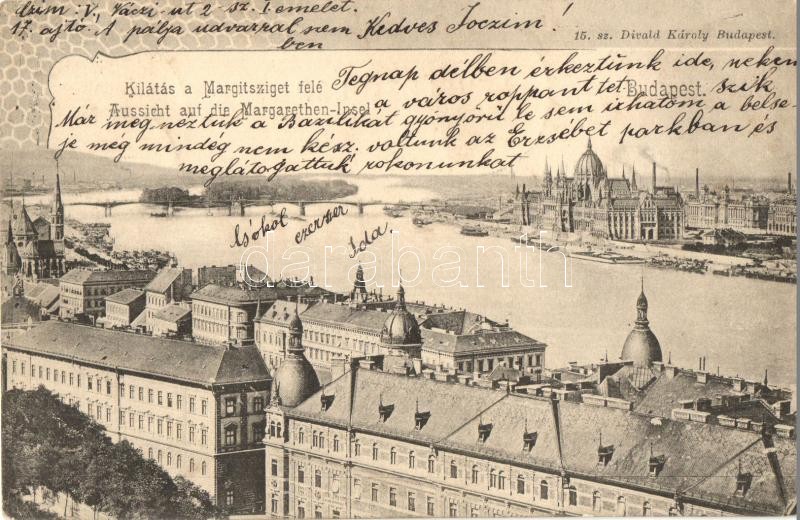 Czim: V, Váczi-ut 2 sz. I. emelet.
17. ajtó. A pálja udvarral nem Kedves Joczim!
ben
15. sz. Divald Károly Budapest.
Kilátás a Margitsziget felé
Tegnap délben érkeztünk ide, nekem
Budapest.
Aussicht auf die Margarethen-Insel
a város roppant tetszik
Már megnéztük a Bazilikát gyönyörű le sem irhatom a belse-
je meg mindég nem kész. voltunk az Erzsébet parkban és
meglátogattuk rokonunkat
Csókol ezerszer
Ida.
darabanth